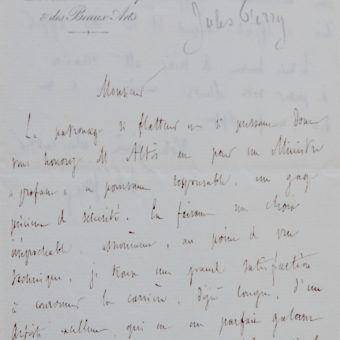 & des Beaux-Arts
Jules Ferry
Monsieur
Le patronage si flatteur et si puissant dont
vous honorez M. Altès est pour un Ministre
"profane" et pourtant responsable, un gage
précieux de sécurité. En faisant un choix
irréprochable assurément, au point de vue
technique, je trouve une grande satisfaction
à couronner la carrière, déjà longue, d'un
artiste excellent, qui est un parfait galant